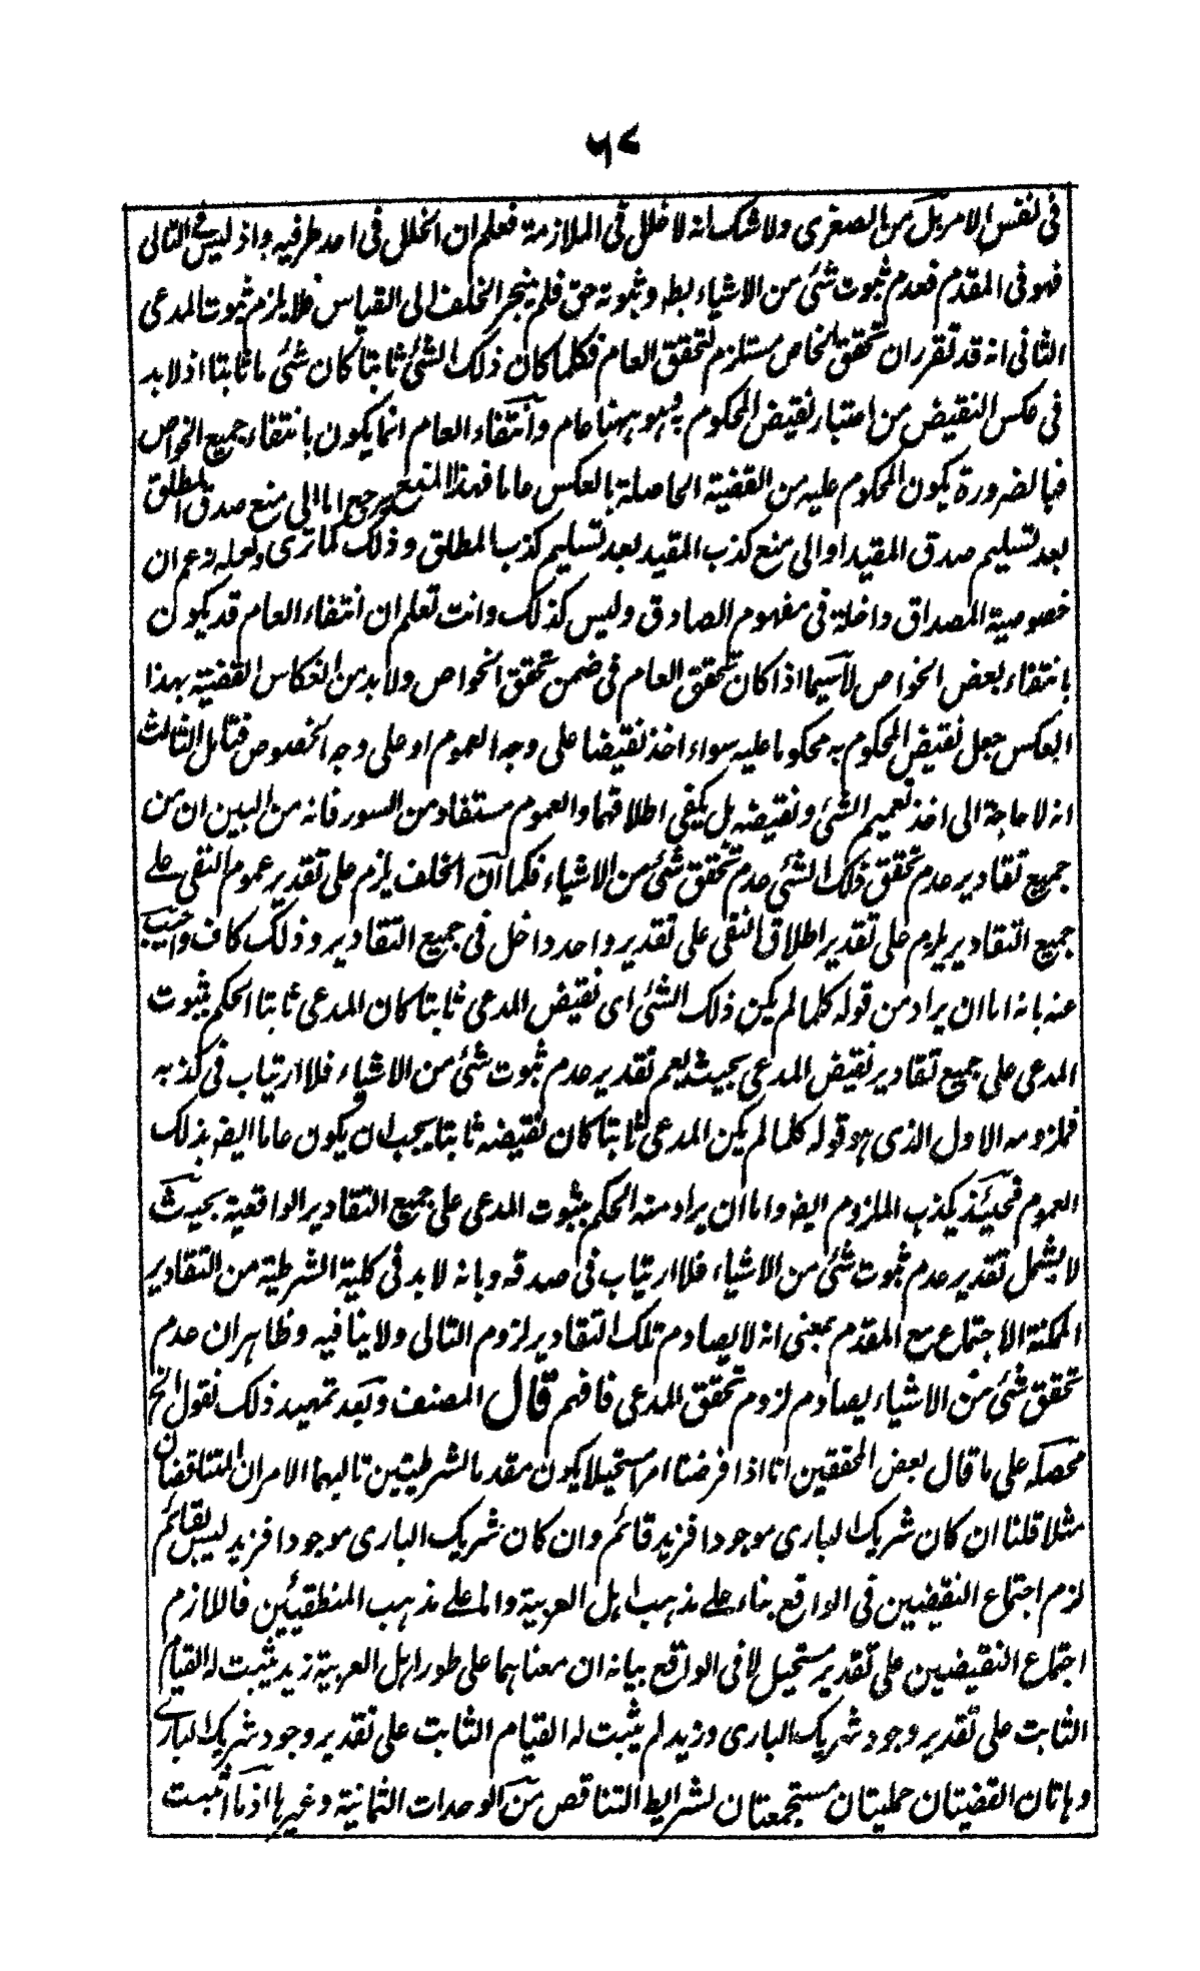 ٦٧
في نفس الامر بل من الصغرى ولا شك انه لا خلل في الملازمة فعلم ان الخلل في احد طرفيه واذ ليس في التالى
فهو في المقدم فعدم ثبوت شئ من الاشياء بط وثبوته حق فلم ينجر الخلف الى القياس فلا يلزم ثبوت المدعى
الثانى انه قد تقرر ان تحقق الخاص مستلزم لتحقق العام فكلما كان ذلك الشئ ثابتا كان شئ ما ثابتا اذ لا بد
في عكس النقيض من اعتبار نقيض المحكوم به وهو ههنا عام وانتفاء العام انما يكون بانتفاء جميع الخواص
فبالضرورة يكون المحكوم عليه من القضية الحاصلة بالعكس عاما فهذا المنع يرجع اما الى منع صدق المطلق
بعد تسليم صدق المقيد او الى منع كذب المقيد بعد تسليم كذب المطلق وذلك كما ترى ولعله زعم ان
خصوصية المصداق داخلة في مفهوم الصادق وليس كذلك وانت تعلم ان انتفاء العام قد يكون
بانتفاء بعض الخواص لاسيما اذا كان تحقق العام في ضمن تحقق الخواص ولا بد من انعكاس القضية بهذا
العكس جعل نقيض المحكوم به محكوما عليه سواء اخذ نقيضا على وجه العموم او على وجه الخصوص فتامل الثالث
انه لا حاجة الى اخذ تعميم الشئ ونقيضه بل يكفى اطلاقهما والعموم مستفاد من السور فانه من البين ان من
جميع تقادير عدم تحقق ذلك الشئ عدم تحقق شئ من الاشياء فكما ان الخلف يلزم على تقدير عموم النفى على
جميع التقادير يلزم على تقدير اطلاق النفى على تقدير واحد داخل في جميع التقادير وذلك كاف واجيب
عنه بانه اما ان يراد من قوله كلما لم يكن ذلك الشئ اى نقيض المدعى ثابتا كان المدعى ثابتا الحكم بثبوت
المدعى على جميع تقادير نقيض المدعى بحيث يعم تقدير عدم ثبوت شئ من الاشياء فلا ارتياب في كذبه
فملزومه الاول الذى هو قوله كلما لم يكن المدعى ثابتا كان نقيضه ثابتا يجب ان يكون عاما ايض بذلك
العموم فحينئذ يكذب الملزوم ايض واما ان يراد منه الحكم بثبوت المدعى على جميع التقادير الواقعية بحيث
لا يشمل تقدير عدم ثبوت شئ من الاشياء فلا ارتياب في صدقه وبانه لا بد في كلية الشرطية من التقادير
الممكنة الاجتماع مع المقدم بمعنى انه لا يصادم تلك التقادير لزوم التالى ولا ينافيه وظاهر ان عدم
تحقق شئ من الاشياء يصادم لزوم تحقق المدعى فافهم قال المصنف وبعد تمهيد ذلك نقول الخ
محصله على ما قال بعض المحققين انا اذا فرضنا امرا مستحيلا يكون مقدما لشرطيتين تاليهما الامران المتناقضان
مثلا قلنا ان كان شريك البارى موجودا فزيد قائم وان كان شريك البارى موجودا فزيد ليس بقائم
لزم اجتماع النقيضين في الواقع بناء على مذهب اهل العربية واما على مذهب المنطقيين فاللازم
اجتماع النقيضين على تقدير مستحيل لا في الواقع بيانه ان معناهما على طور اهل العربية زيد يثبت له القيام
الثابت على تقدير وجود شريك البارى وزيد لم يثبت له القيام الثابت على تقدير وجود شريك البارى
وهاتان القضيتان حمليتان مستجمعتان لشرايط التناقض من الوحدات الثمانية وغيرها اذ ما اثبت